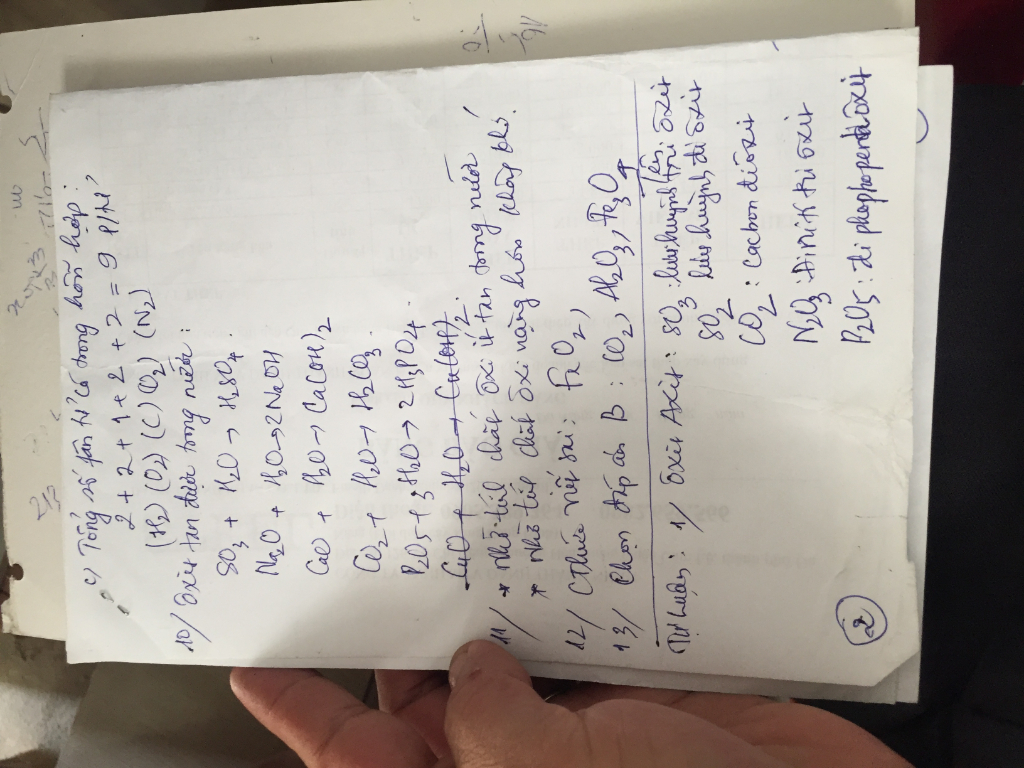 c) Tổng số phân tử có trong hỗn hợp:
2 + 2 + 1 + 2 + 2 = 9 p/tử
(H2) (O2) (C) (O2) (N2)
10/ Oxit tan được trong nước:
SO3 + H2O → H2SO4.
Na2O + H2O → 2NaOH
CaO + H2O → Ca(OH)2
CO2 + H2O → H2CO3
P2O5 + 3H2O → 2H3PO4.
CuO + H2O → Cu(OH)2.
11/ * Nhờ t/c chất ôxi ít tan trong nước
* Nhờ t/c chất ôxi nặng hơn không khí.
12/ CThức viết sai: FeO2,
13/ Chọn đáp án B: CO2, Al2O3, Fe3O4
Tự luận: 1/ Oxit Axit:
SO3: lưu huỳnh tri ôxit
SO2 lưu huỳnh đi ôxit
CO2: cacbon điôxit
N2O3: Đinitơ tri ôxit
P2O5: đi photpho penta ôxit
2